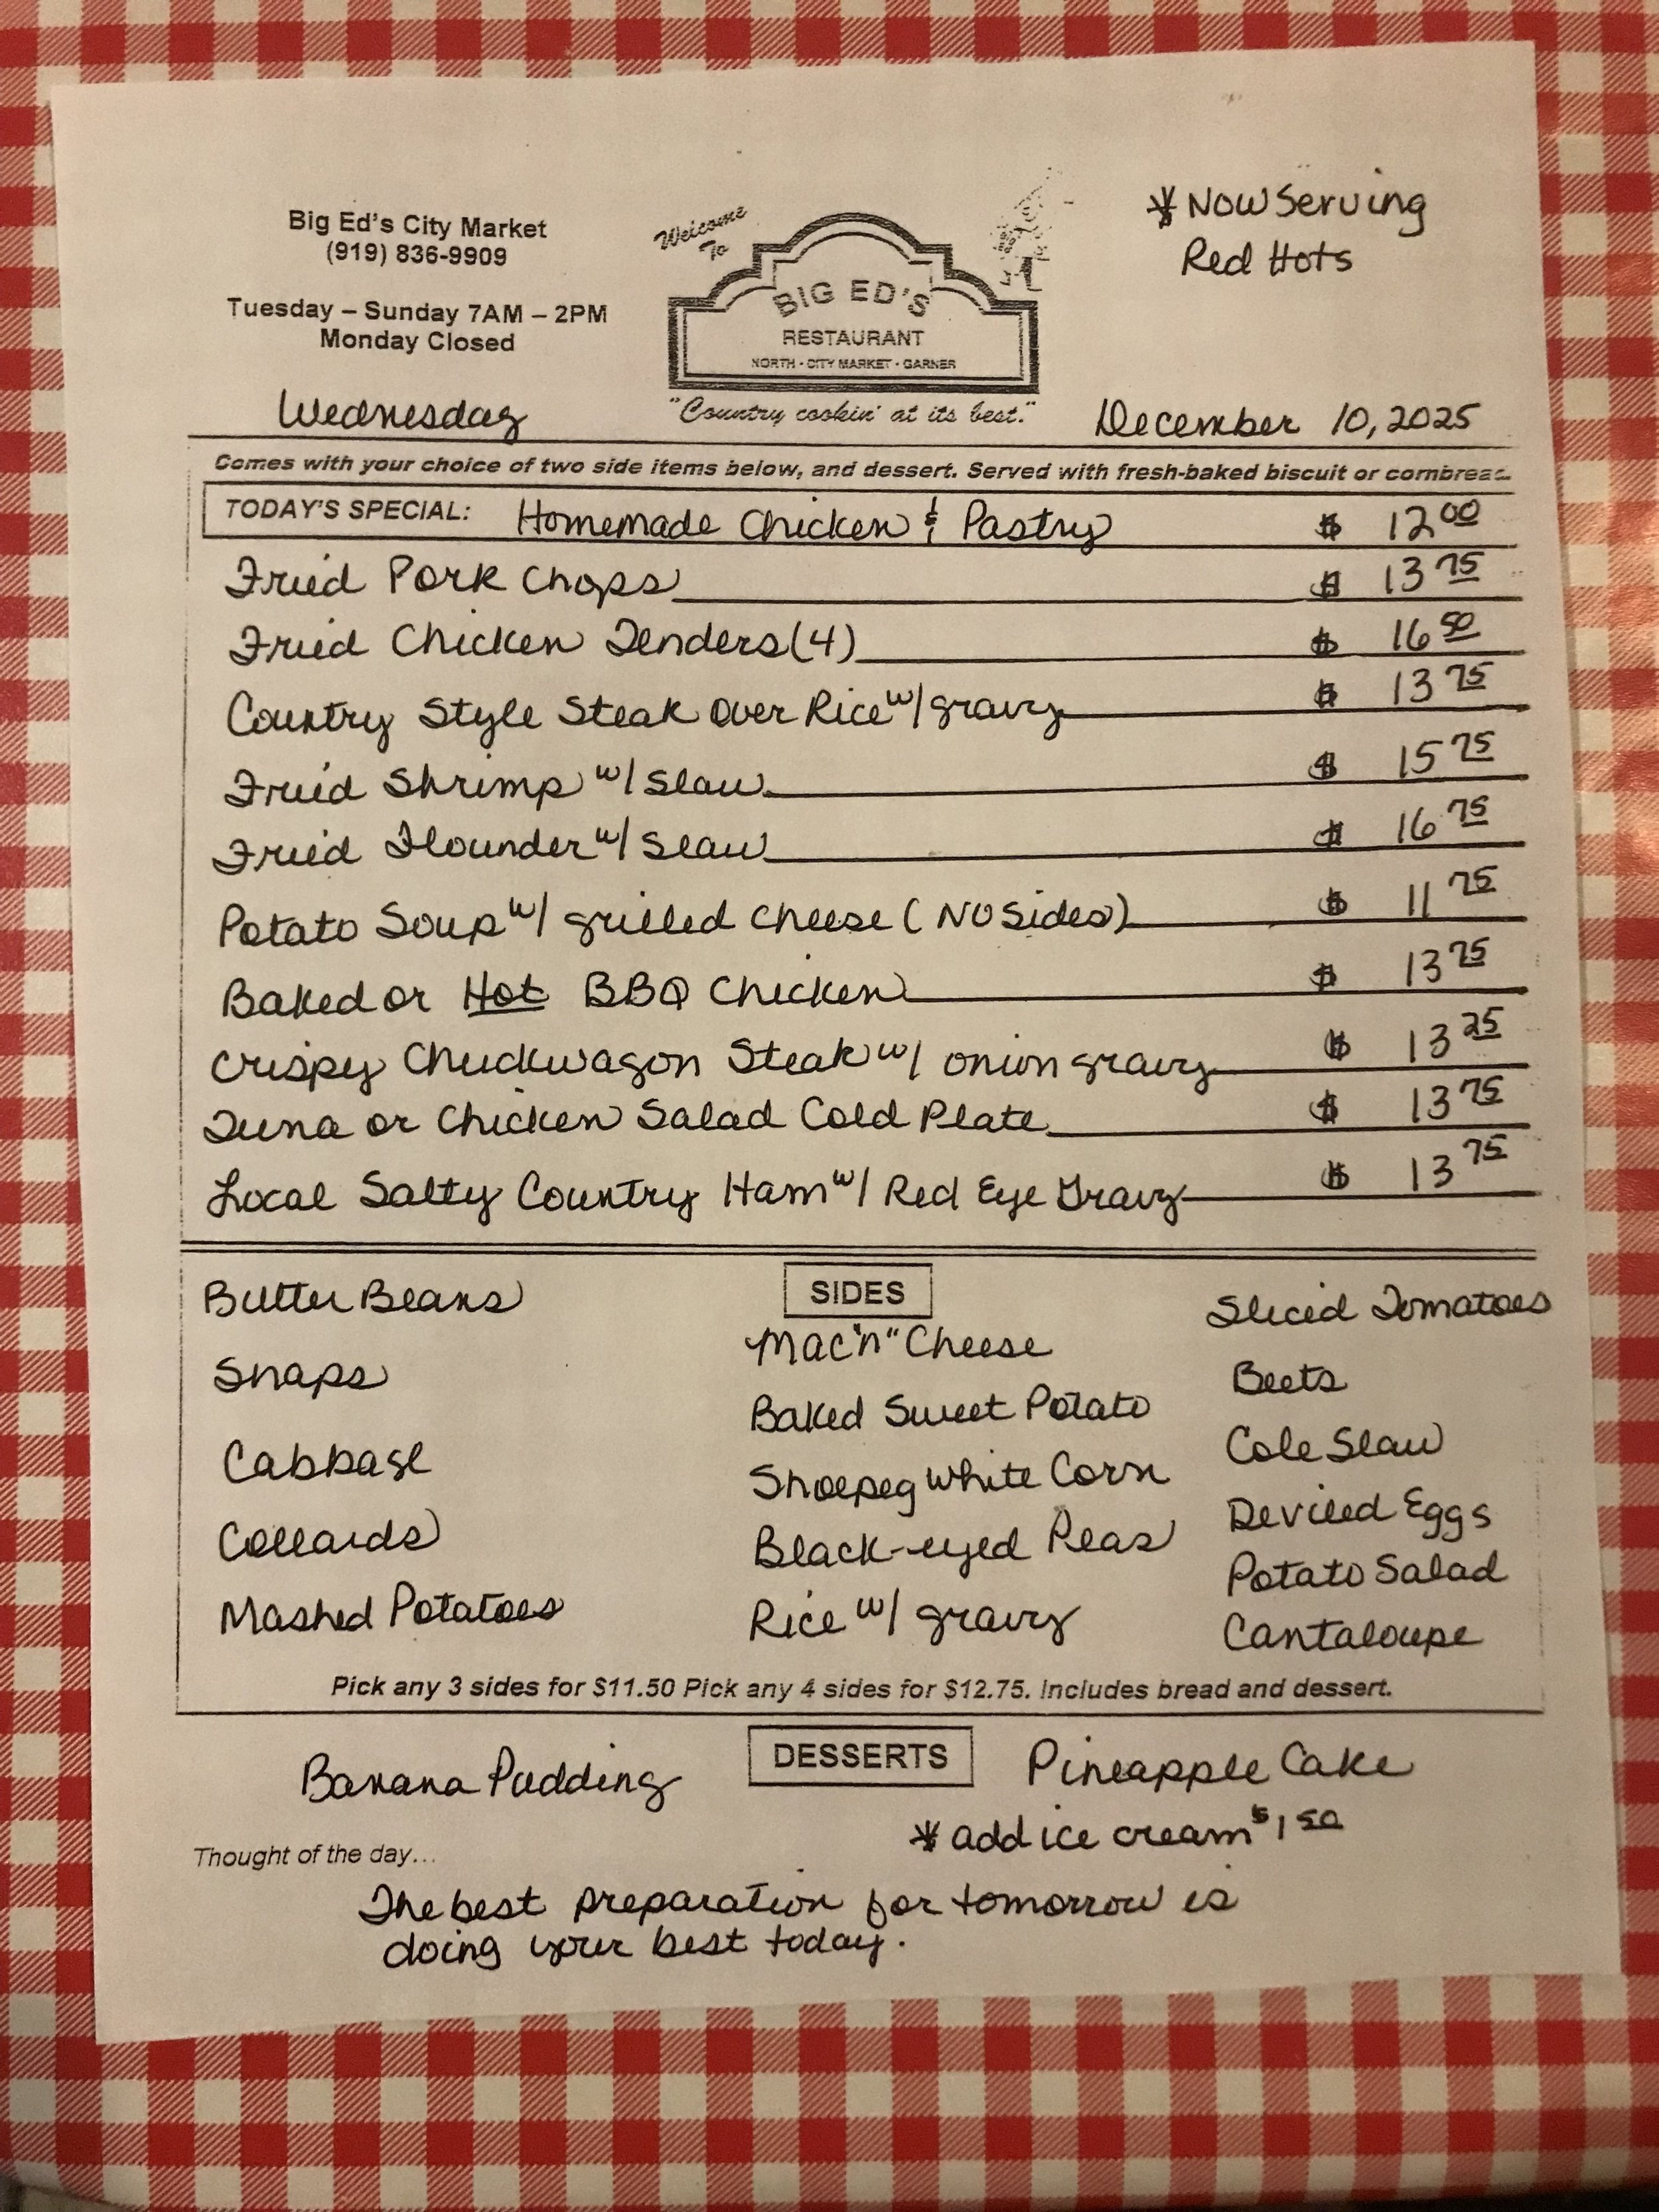 Big Ed's City Market
(919) 836-9909
Tuesday – Sunday 7AM – 2PM
Monday Closed
Welcome
To
BIG ED'S
RESTAURANT
NORTH · CITY MARKET · GARNER
"Country cookin' at its best."
* Now Serving
Red Hots
Wednesday
December 10, 2025
Comes with your choice of two side items below, and dessert. Served with fresh-baked biscuit or cornbrea
TODAY'S SPECIAL: Homemade Chicken & Pastry $ 12 00
Fried Pork Chops $ 13 75
Fried Chicken Tenders (4) $ 16 50
Country Style Steak Over Rice w/ gravy $ 13 75
Fried Shrimp w/ Slaw $ 15 75
Fried Flounder w/ Slaw $ 16 75
Potato Soup w/ grilled cheese (No Sides) $ 11 75
Baked or Hot BBQ Chicken $ 13 75
Crispy Chuckwagon Steak w/ onion gravy $ 13 25
Tuna or Chicken Salad Cold Plate $ 13 75
Local Salty Country Ham w/ Red Eye Gravy $ 13 75
SIDES
Butter Beans
Snaps
Cabbage
Collards
Mashed Potatoes
Mac "n" Cheese
Baked Sweet Potato
Shoepeg White Corn
Black-eyed Peas
Rice w/ gravy
Sliced Tomatoes
Beets
Cole Slaw
Deviled Eggs
Potato Salad
Cantaloupe
Pick any 3 sides for $11.50 Pick any 4 sides for $12.75. Includes bread and dessert.
DESSERTS
Banana Pudding
Pineapple Cake
* add ice cream $1 50
Thought of the day...
The best preparation for tomorrow is
doing your best today.